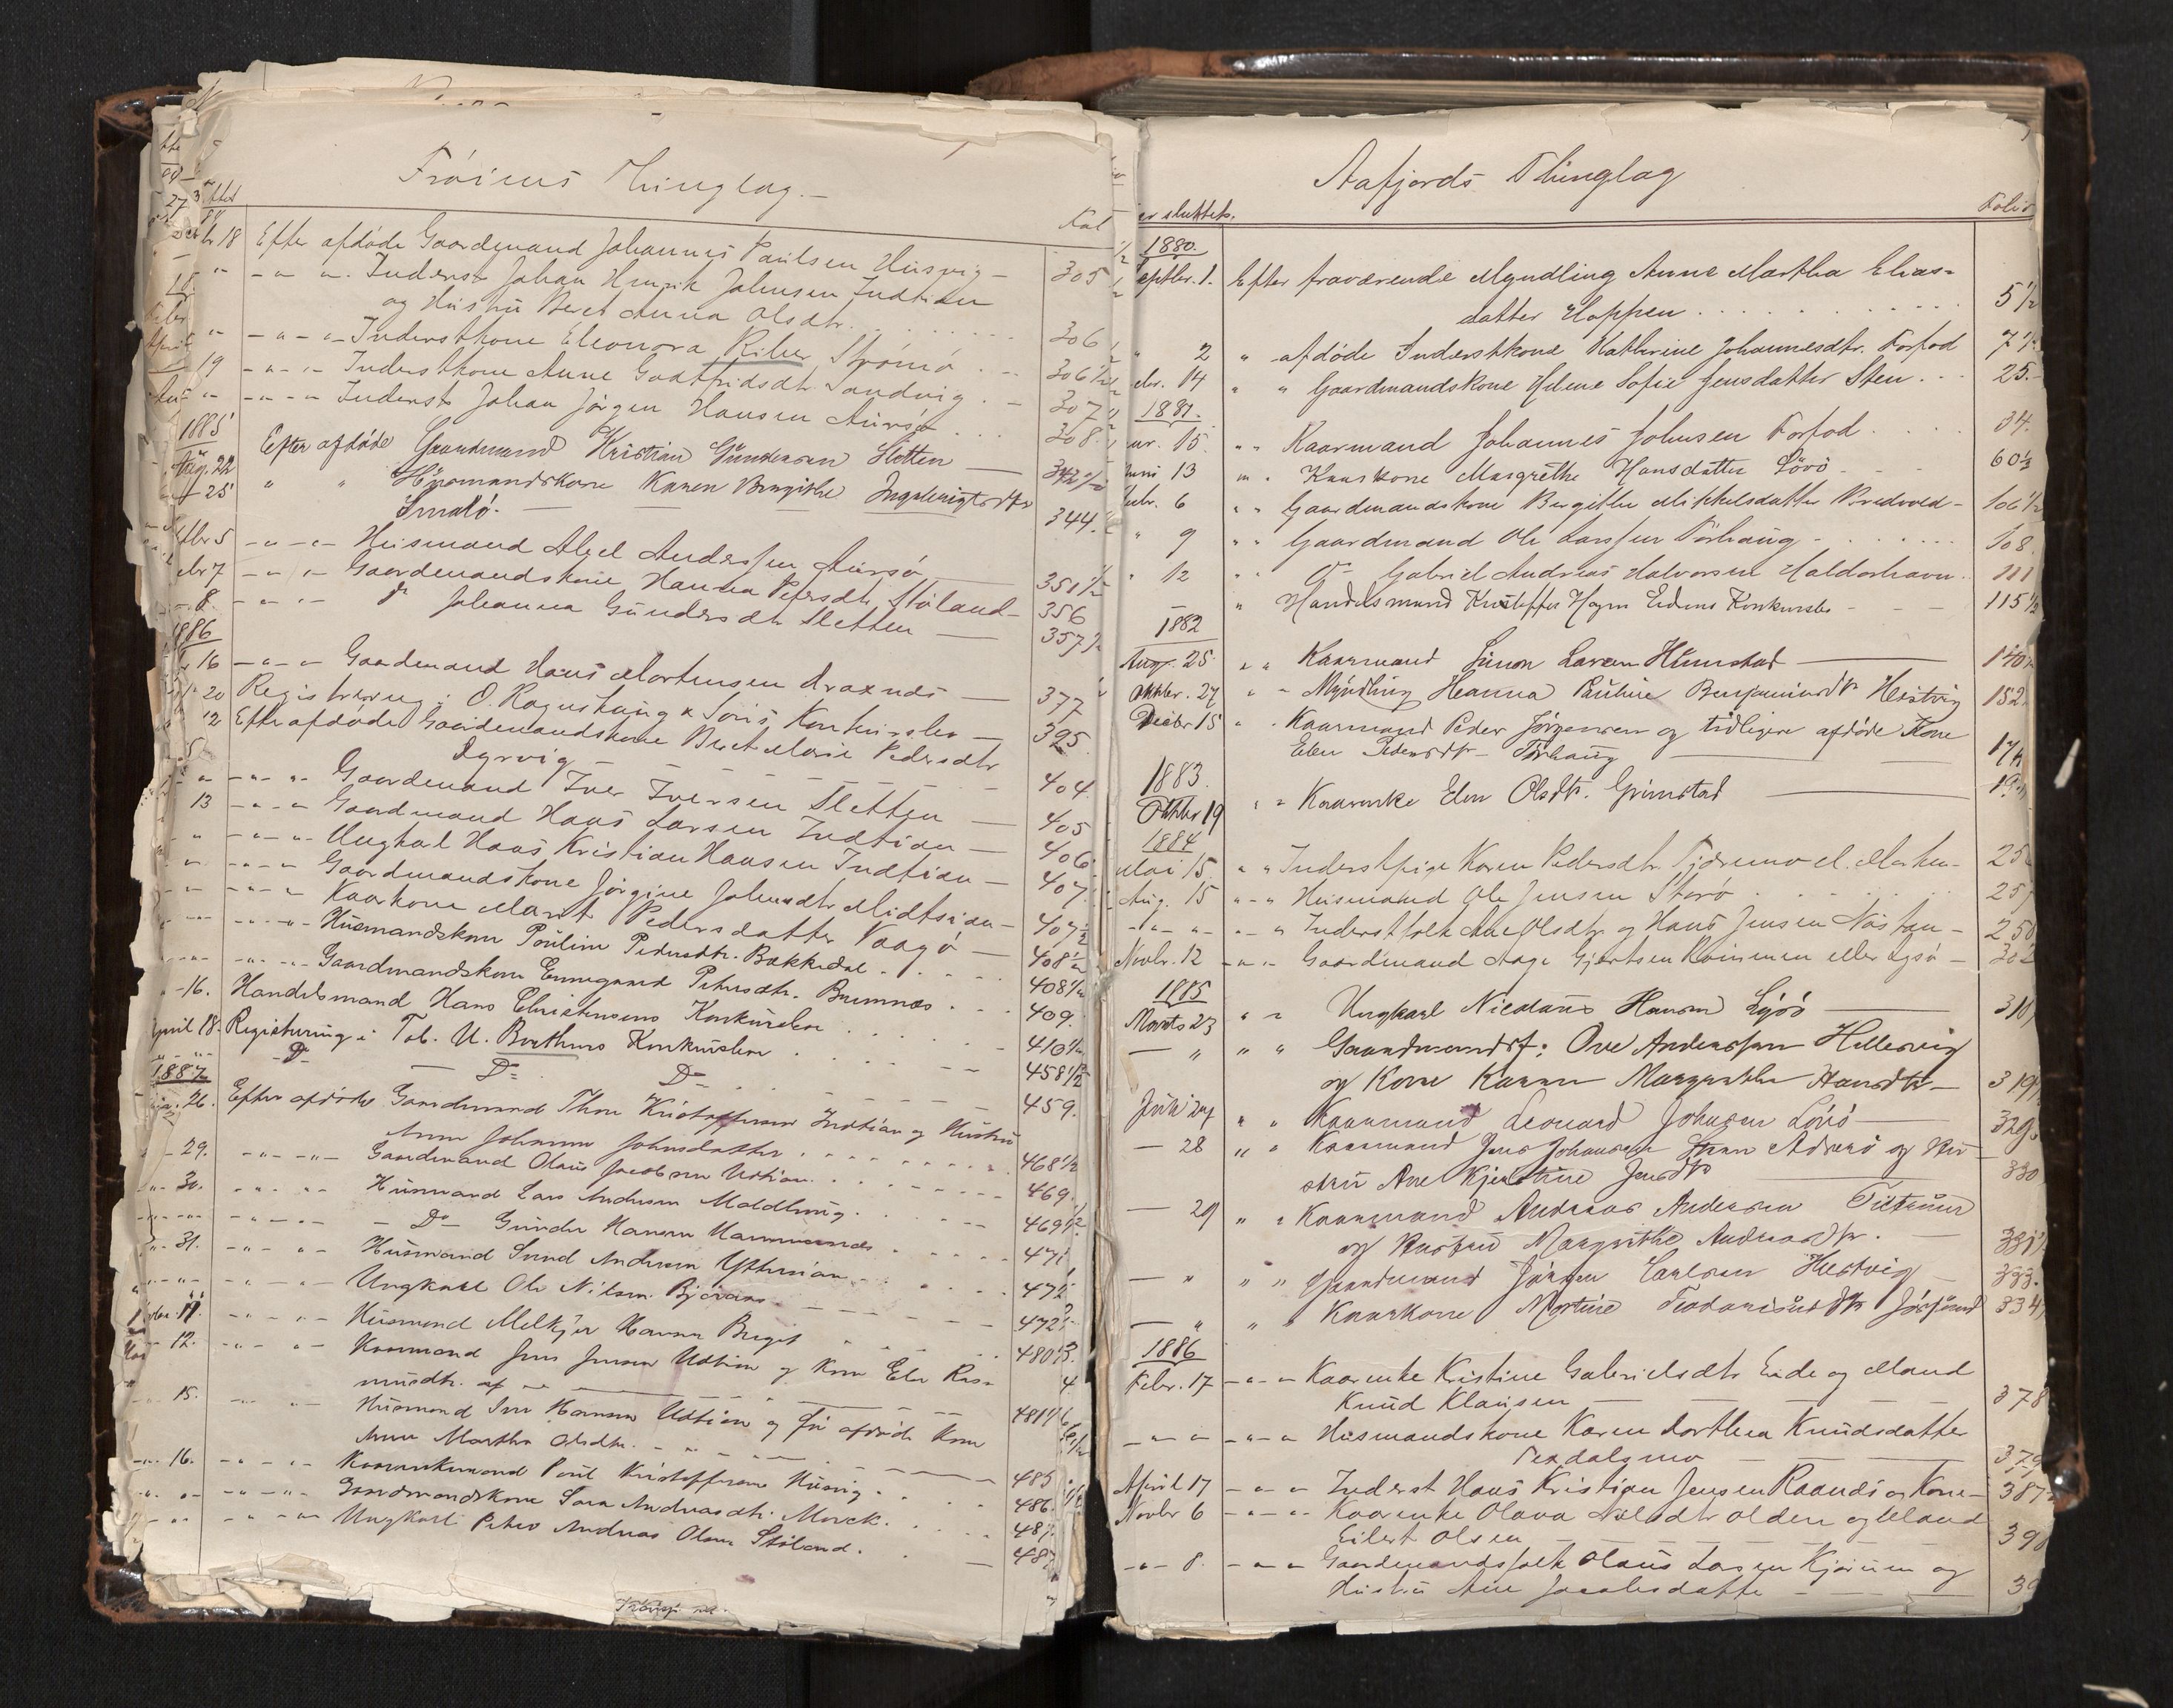 Fröiens Thinglag.
Fol
18 Efter afdøde Gaardmand Johannes Paulsen Husvig 305
" -"- Inderst Johan Henrik Johnsen Indtian
og Hustru Beret Anna Olsdtr. 306
" -"- Inderstkone Eleonora Riber Strömö 306½
19 -"- Inderstkone Anne Godtfridsdtr Sandvig 307
-"- Inderst Johan Jörgen Hansen Aursö 308
1885
Aug. 22 Efter afdøde Gaardmand Kristian Gundersen Sletten 342½
25 " " Husmandskone Karen Birgithe Ingebrigtsdtr
Smalö. 344.
5 -"- Husmand Abel Anderssen Aursö 351½
7 -"- Gaardmandskone Hanna Petersdtr Stöland 356
8 -"- Do Johanna Gundersdtr Sletten 357½
1886
16 -"- Gaardmand Hans Mortensen Draxnes 377
20 Registrering i O. Rognshaug & Söns Konkursbo 395
12 Efter afdøde Gaardmandskone Beret Marie Pedersdtr
Dyrvig 404
" -"- Gaardmand Iver Iversen Sletten 405
13 -"- Gaardmand Hans Larsen Indtian 406
" -"- Ungkarl Hans Kristian Hansen Indtian 407
" -"- Gaardmandskone Jörgine Johnsdtr Midtsian 407½
" -"- Kaarkone Marit Pedersdatter Vaagö 408½
-"- Husmandskone Pauline Pedersdtr. Bakkedal 408½
-"- Gaardmandskone Ennegaard Petersdtr. Burmnæs 409
16. Handelsmand Hans Christensens Konkursbo 410½
April 18. Registrering i Tob. U. Borthens Konkursbo 458½
Do Do Do 459.
1887
26. Efter afdøde Gaardmand Thore Kristoffersen Indtian og Hustru
Anne Johanna Johnsdatter 468½
29. -"- Gaardmand Olaus Jacobsen Udtian 469.
30. -"- Husmand Lars Andersen Moldtung 469½
-"- Do Gunder Hansen Hammernæs 471
31. -"- Husmand Svend Andersen Yttersian 472
-"- Ungkarl Ole Nilsen Björnæs 472½
11. -"- Husmand Melkjer Hansen Bugit 480½
12. -"- Kaarmand Jens Jensen Udtian og Kone Elen Ras-
musdtr. af 481½
15. -"- Husmand Iver Hansen Udtian og før afdøde Kone
Anne Martha Olsdtr. 485
16. -"- Kaarenkemand Paul Kristoffersen Husvig 486.
-"- Gaardmandskone Sara Andreasdtr. Morck. 487
-"- Ungkarl Peter Andreas Olsen Stöland. 487
Aafjords Thinglag
er sluttet. Folio
1880.
eptbr. 1. Efter fraværende Myndling Anne Martha Elias-
datter Hoppen 5½
" 2 " afdøde Inderstkone Kathrine Johannesdtr. Forfod 7½
14 " " Gaardmandskone Helene Sofie Jensdatter Sten 25.
1881.
15. " " Kaarmand Johannes Johnsen Forfod 34.
13 " " Kaarkone Margrethe Hansdatter Lövö 60½
6 " " Gaardmandskone Bergithe Mikkelsdatter Bredvold 106½
" 9 " " Gaardmand Ole Larssen Törhaug 108.
" 12 " " Do Gabriel Andreas Halvorsen Haldorhavn 111
" Handelsmand Kristoffer Hagen Eidems Konkursbo 115½
1882
Aug. 25. " " Kaarmand Simon Larsen Hüнstad 140
Oktbr. 27 " " Myndling Hanna Pauline Benjaminsdtr Hestvig 152
Decbr 15 " " Kaarmand Peder Jörgensen og tidligere afdøde Kone
Elen Pedersdtr Törhaug 174
1883.
Oktbr 19 " " Kaarenke Elen Olsdtr. Grimstad 19
1884
Mai 15. " " Inderstpige Karen Pedersdtr Tjæremo 25
Aug. 15 -"- Husmand Ole Jensen Storö 257
-"- -"- Inderstfolk Ane Olsdtr og Hans Jensen Næstan 258
Novbr. 12 -"- Gaardmand Aage Gjertsen Kvinmen eller Lysö 302
1885
Marts 23 " " Ungkarl Nicolaus Hansen Lysö 310
— " " " Gaardmandsf: Ove Anderssen Hellesvig
og Kone Karen Margrethe Hansdtr 319
Juli 24 " " Kaarmand Leonard Johnsen Lövö 329
— 28 " " Kaarmand Jens Johansen Adsenö og Hu-
stru Ane Kjerstine Jensdtr 330
— 29 " " Kaarmand Andreas Andersen Tiltrum
og Hustru Margrethe Andreasdtr. 331½
— " " " Gaardmand Jörgen Carlsen Hestvig 333.
— " " " Kaarkone Martine Teodorisdtr Jössund 334
1886
Febr. 17 -"- Kaarenke Kristine Gabrielsdtr Eide og Mand
Knud Klausen 378
-"- -"- Husmandskone Karen Dorthea Knudsdatter
Texdalsmo 379
April 17 -"- Inderst Hans Kristian Jensen Raanæs og Kone 387
Novbr 6 -"- Kaarenke Olava Nilsdtr Olden og Mand
Eilert Olsen 398
-"- 8. -"- Gaardmandsfolk Olaus Larsen Kjørum og
Hustru Ane Jacobsdatter 39